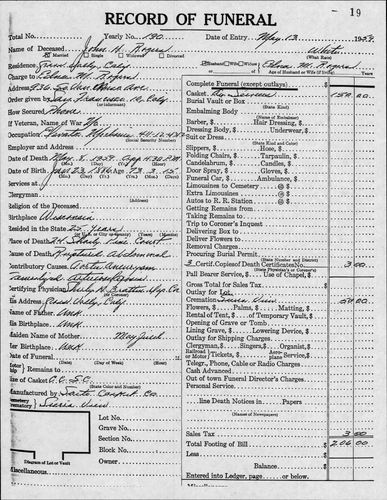 19
RECORD OF FUNERAL
Total No. Yearly No. 190 Date of Entry May 13 1959
Name of Deceased John H. Rogers White
Married Single Widowed Divorced (What Race)
Residence Grass Valley Calif Husband Wife Widow Edna M. Rogers
Age of Husband or Wife (if living) Years
Charge to Edna M. Rogers
Address
Order given by San Francisco 12, Calif
How Secured Phone
If Veteran of War No
Occupation Elevator
(Social Security Number)
Employer and Address
Date of Death May 8, 1959
Date of Birth Jan 23, 1886 Age 73 3 15
Services at
Clergyman
Religion of the Deceased
Birthplace Wisconsin
Resided in the State 25 Years
Place of Death 24 Shady Pine Court
Cause of Death Ruptured Abdominal
Contributory Causes Aortic Aneurysm
Certifying Physician
His Address Grass Valley, Calif
Name of Father Unk
His Birthplace Unk
Maiden Name of Mother May
Her Birthplace Unk
Date of Funeral
(Date) (Day of Week) (Hour)
Remains to
Size of Casket
(State Color and Number)
Manufactured by Casket Co.
Cemetery
Crematory Sierra View
Lot No.
Grave No.
Section No.
Block No.
Owner
Diagram of Lot or Vault
Miscellaneous
Complete Funeral (except outlays) $
Casket 150.00
Burial Vault or Box
(State Kind)
Embalming Body
(Name of Embalmer)
Barber, $ Hair Dressing, $
Dressing Body, $ Underwear, $
Suit or Dress
(State Kind and Color)
Slippers, $ Hose, $
Folding Chairs, $ Tarpaulin, $
Candelabrum, $ Candles, $
Door Spray, $ Gloves, $
Funeral Car, $ Ambulance, $
Limousines to Cemetery @ $
Extra Limousines @ $
Autos to R. R. Station @ $
Getting Remains from
Taking Remains to
Trip to Coroner's Inquest
Delivering Box to
Deliver Flowers to
Removal Charges
Procuring Burial Permit
(State Number and District)
3 Certif. Copies of Death Certificate No. 3.00
(State Physician's or Coroner's)
Pall Bearer Service, $ Use of Chapel, $
Gross Total for Sales Tax $
Outlay for Lot
Cremation Sierra View 50.00
Flowers, $ Palms, $ Matting, $
Rental of Tent, $ of Temporary Vault, $
Opening of Grave or Tomb
Lining Grave, $ Lowering Device, $
Outlay for Shipping Charges
Clergyman, $ Singers, $ Organist, $
Railroad or Motor Tickets, $ Aeroplane Service, $
Telegr., Phone, Cable or Radio Charges
Cash Advanced
Out of town Funeral Director's Charges
Personal Service
line Death Notices in Papers
Sales Tax $ 3.00
Total Footing of Bill $ 206.00
Less
Balance $
Entered into Ledger, page or below.